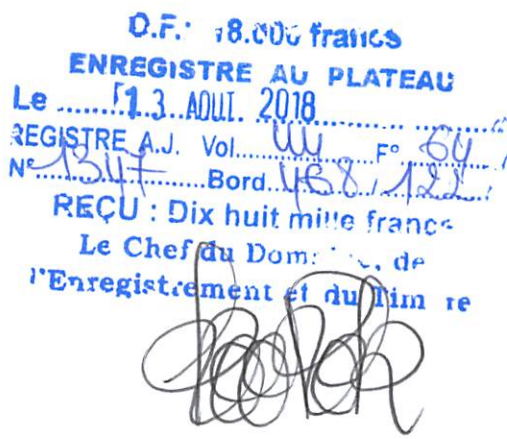 D.F.: 18.000 francs
ENREGISTRE AU PLATEAU
Le ........13 AOUT 2018............
REGISTRE A.J. Vol.....44.....F° 64
N° 1347.......Bord. 468 / 122
REÇU : Dix huit mille francs
Le Chef du Domaine, de
l'Enregistrement et du Timbre